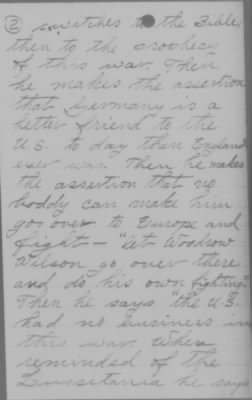 ② switches to the Bible
then to the prophecy
of this war. Then
he makes the assertion
that Germany is a
better friend to the
U.S. to day than England
ever was. Then he makes
the assertion that no
boddy can make him
go over to Europe and
fight – "let Woodrow
Wilson go over there
and do his own fighting."
Then he says "the U.S.
had no business in
this war. When
reminded of the
Lusitania he says